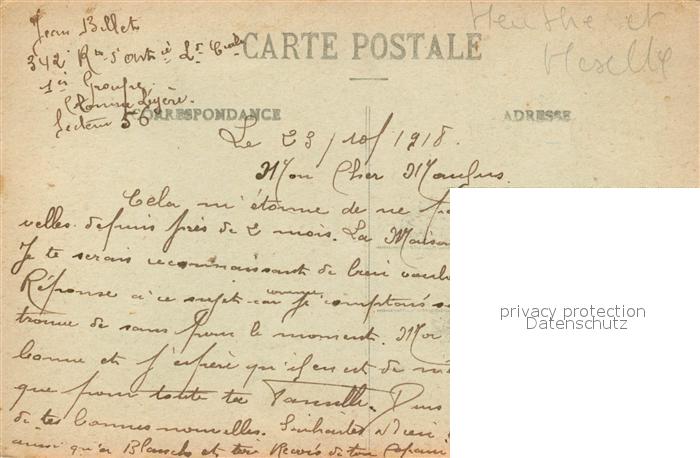 Jean Billet
342 Rte d'Art 
1er Groupe
Légère.
Secteur 56
Meurthe et
Moselle
CARTE POSTALE
CORRESPONDANCE
ADRESSE
Le 23/10/1918.
Mon Cher
Cela m'étonne de ne
velles depuis près de 2 mois. La Maison
Je te serais reconnaissant de bien
Réponse à ce sujet car je comptais
comme
trouve de sans pour le moment. Mor
bonne et j'espère qu'il en est de mê
que pour toute ta Famille. Dans
de tes bonnes nouvelles. Souhaites
ainsi qu'a Blanche et toi Reçois de ton
privacy protection
Datenschutz